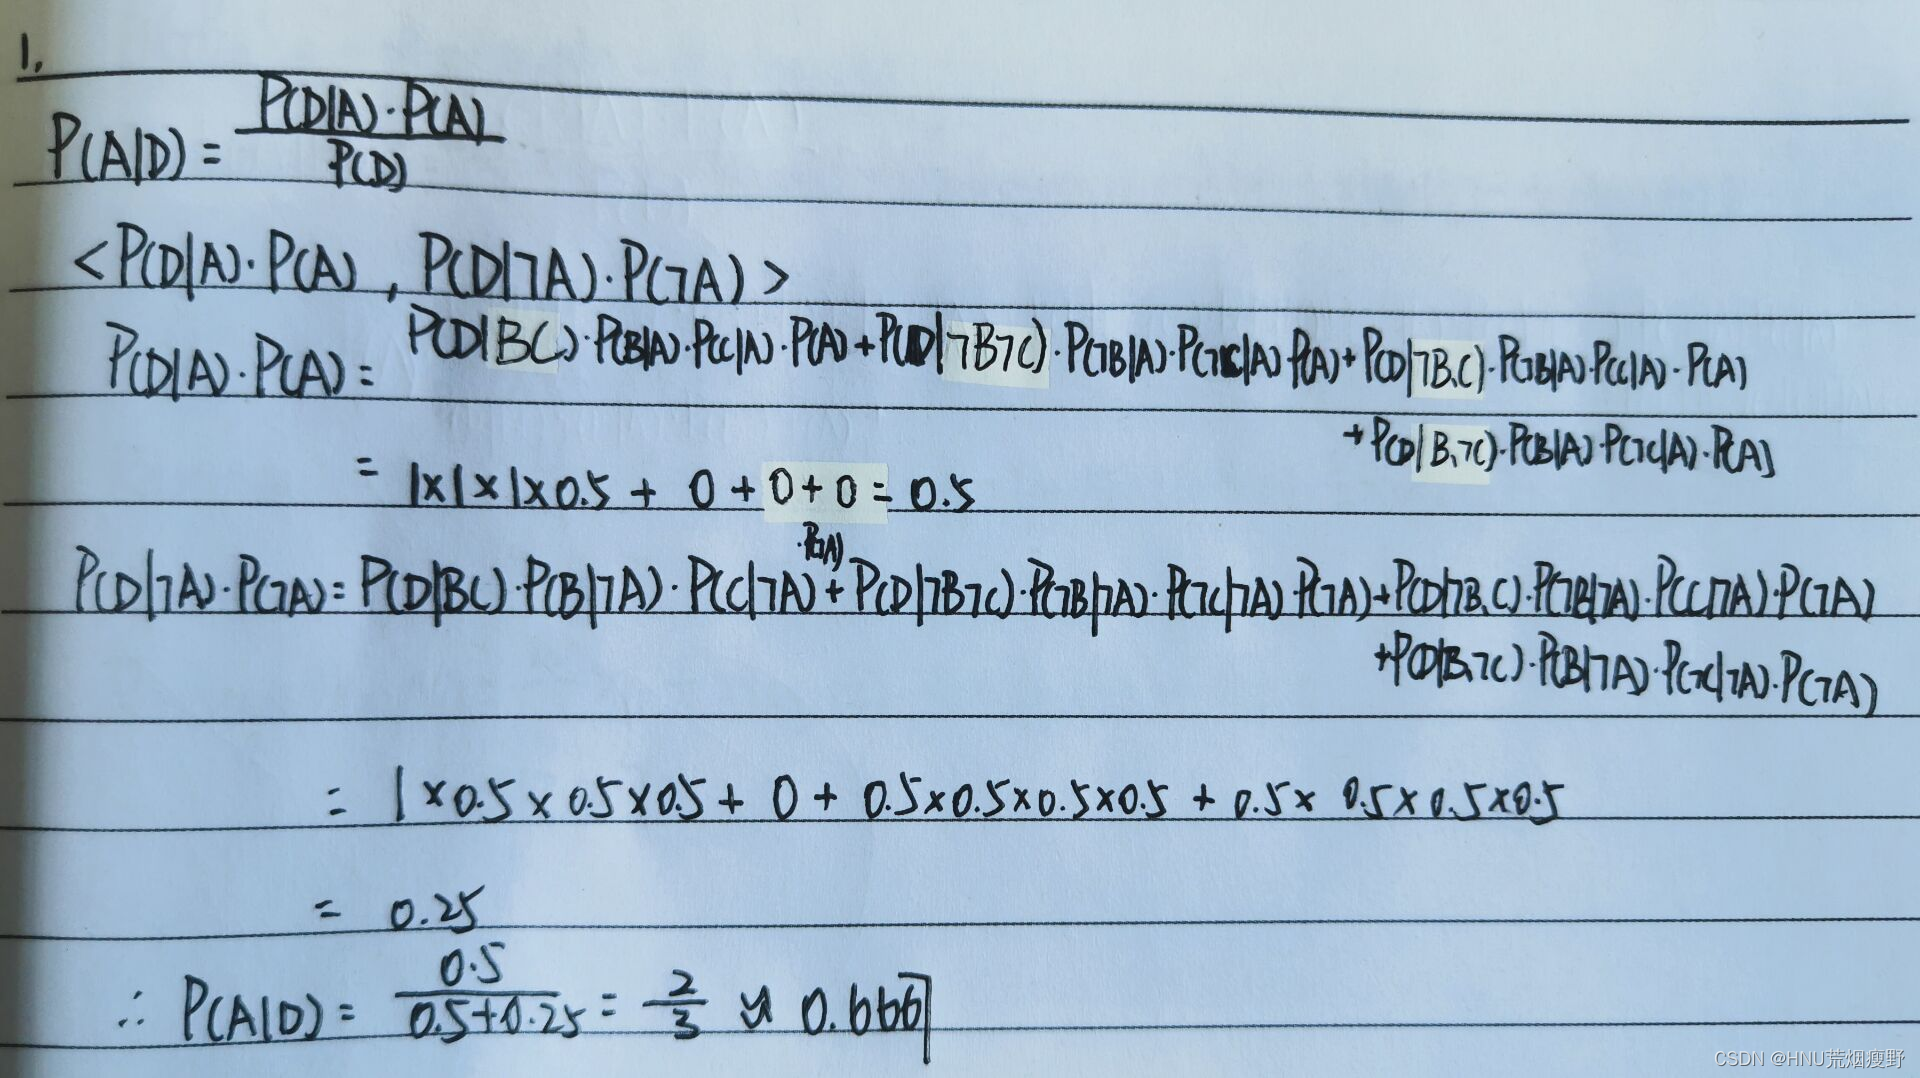 1.
P(A|D) = P(D|A)·P(A) / P(D)
<P(D|A)·P(A) , P(D|¬A)·P(¬A)>
P(D|A)·P(A) = P(D|BC)·P(B|A)·P(C|A)·P(A)+P(D|¬B¬C)·P(¬B|A)·P(¬C|A)P(A)+P(D|¬B,C)·P(¬B|A)·P(C|A)·P(A)
+P(D|B,¬C)·P(B|A)·P(¬C|A)·P(A)
= 1×1×1×0.5 + 0 + 0+0 = 0.5
·P(¬A)
P(D|¬A)·P(¬A)= P(D|BC)·P(B|¬A)·P(C|¬A)+P(D|¬B¬C)·P(¬B|¬A)·P(¬C|¬A)·P(¬A)+P(D|¬B,C)·P(¬B|¬A)·P(C|¬A)·P(¬A)
+P(D|B,¬C)·P(B|¬A)·P(¬C|¬A)·P(¬A)
= 1×0.5×0.5×0.5+ 0 + 0.5×0.5×0.5×0.5 + 0.5×0.5×0.5×0.5
= 0.25
∴ P(A|D) = 0.5 / 0.5+0.25 = 2/3 ≈ 0.6667
CSDN @HNU荒烟瘦野